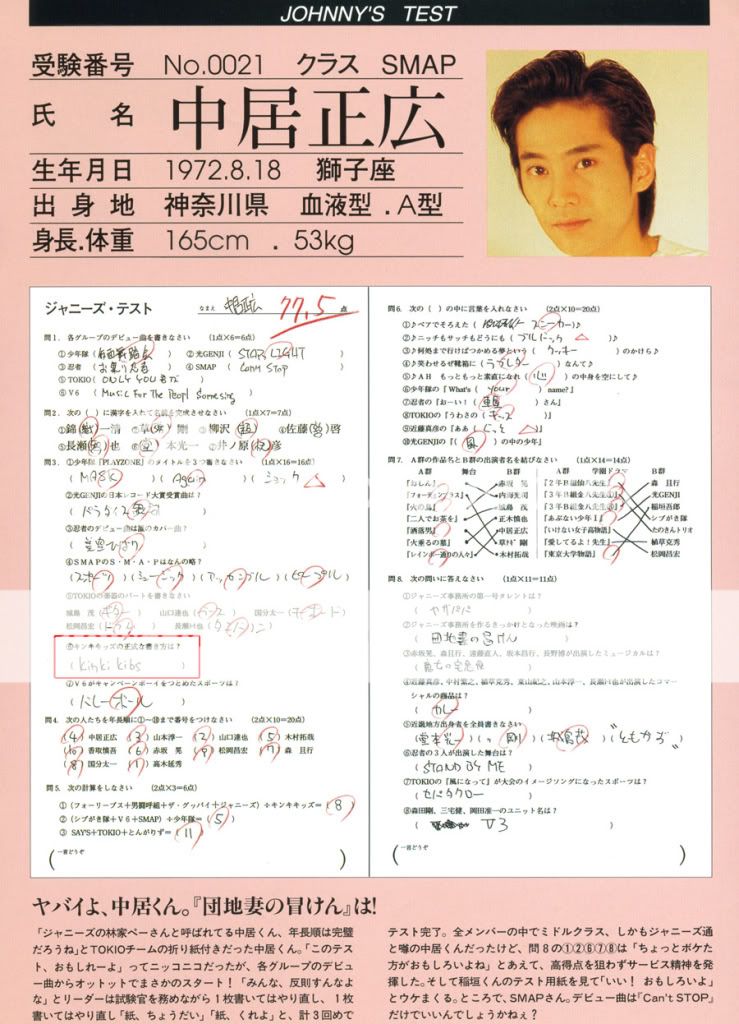 JOHNNY'S TEST
受験番号 No.0021 クラス SMAP
氏 名 中居正広
生年月日 1972.8.18 獅子座
出身地 神奈川県 血液型．A型
身長.体重 165cm . 53kg
ジャニーズ・テスト なまえ 中居正広 77.5 点
問1. 各グループのデビュー曲を書きなさい (1点×6=6点)
①少年隊(仮面舞踏会) ②光GENJI(STAR LIGHT)
③忍者(お祭り忍者) ④SMAP(Can't Stop)
⑤TOKIO(ONLY YOU)
⑥V6(Music For The People)
問2. 次の( )に漢字を入れて名前を完成させなさい (1点×7=7点)
①錦(織)一清 ②草(彅)剛 ③柳沢(超) ④佐藤()啓
⑤長瀬(智)也 ⑥(堂)本光一 ⑦井ノ原(快)彦
問3. ①少年隊『PLAYZONE』のタイトルを3つ書きなさい (1点×16=16点)
(MASK) (Again) (ショック)
②光GENJIの日本レコード大賞受賞曲は？
(パラダイス銀河)
③忍者のデビュー曲は誰のカバー曲？
(美空ひばり)
④SMAPのS・M・A・Pはなんの略？
(スポーツ)(ミュージック)(アッセンブル)(ピープル)
⑤TOKIOの楽器のパートを書きなさい
城島 茂(ギター) 山口達也(ベース) 国分太一(キーボード)
松岡昌宏(ドラム) 長瀬智也()
⑥キンキキッズの正式な書き方は？
(kinki kibs)
⑦V6がキャンペーンボーイをつとめたスポーツは？
(バレーボール)
問4. 次の人たちを年長順に①〜⑩まで番号をつけなさい (2点×10=20点)
(4)中居正広 (3)山本淳一 (2)山口達也 (5)木村拓哉
(10)香取慎吾 (6)赤坂 晃 (9)松岡昌宏 (7)森 且行
(8)国分太一 (1)高木延秀
問5. 次の計算をしなさい (2点×3=6点)
①(フォーリーブス+男闘呼組+ザ・グッバイ+ジャニーズ)÷キンキキッズ=(8)
②(シブがき隊+V6+SMAP)÷少年隊=(5)
③ SAY'S+TOKIO+とんがりずA=(11)
一言どうぞ
問6. 次の( )の中に言葉を入れなさい (2点×10=20点)
①♪ペアでそろえた(スニーカー)♪
②♪ニッチもサッチもどうにも(ブルドック)♪
③♪何処まで行けばつかめる夢という(クッキー)のかけら♪
④♪笑わせるぜ靴箱に(ラブレター)なんて♪
⑤♪AH もっともっと素直になれ(心)の中身を空にして♪
⑥少年隊の「What's(your)name?」
⑦忍者の『おーい!(車屋)さん』
⑧TOKIOの『うわさの(キッス)』
⑨近藤真彦の『ああ(ぐっと)』
⑩光GENJIの『(風)の中の少年』
問7. A群の作品名とB群の出演者名を結びなさい (1点×14=14点)
A群 舞台 B群 A群 学園ドラマ B群
『おしん』 赤坂 晃 『2年B組仙八先生』 森 且行
『フォーティンブラス』 内海光司 『3年B組金八先生①』 光GENJI
『火の鳥』 城島 茂 『3年B組金八先生④』 稲垣吾郎
『二人でお茶を』 正木慎也 『あぶない少年Ⅰ』 シブがき隊
『洒落男』 中居正広 『いけない女子高物語』 たのきんトリオ
『火垂るの墓』 草彅 剛 『愛してるよ!先生』 植草克秀
『レインボー通りの人々』 木村拓哉 『東京大学物語』 松岡昌宏
問8. 次の問いに答えなさい (1点×11=11点)
①ジャニーズ事務所の第一号タレントは？
(ヤサパパ)
②ジャニーズ事務所を作るきっかけとなった映画は？
(団地妻の冒けん)
③赤坂晃、森且行、遠藤直人、坂本昌行、長野博が出演したミュージカルは？
(魔女の宅急便)
④近藤真彦、中村繁之、植草克秀、東山紀之、山本淳一、長瀬智也が出演したコマー
シャルの商品は？
(カレー)
⑤近畿地方出身者を全員書きなさい
(堂本光一)(〃 剛)(城島茂)("ともかず")
⑥忍者の3人が出演した舞台は？
(STAND BY ME)
⑦TOKIOの『風になって』が大会のイメージソングになったスポーツは？
(セパタクロー)
⑧森田剛、三宅健、岡田准一のユニット名は？
( V3 )
一言どうぞ
ヤバイよ、中居くん。『団地妻の冒けん』は!
「ジャニーズの林家ペーさんと呼ばれてる中居くん、年長順は完璧
だろうね」とTOKIOチームの折り紙付きだった中居くん。「このテス
ト、おもしれーよ」ってニッコニコだったが、各グループのデビュ
ー曲からオットットでまさかのスタート！「みんな、反則すんなよ
な」とリーダーは試験官を務めながら1枚書いてはやり直し、1枚
書いてはやり直し「紙、ちょうだい」「紙、くれよ」と、計3回めで
テスト完了。全メンバーの中でミドルクラス、しかもジャニーズ通
と噂の中居くんだったけど、問8の①②⑥⑦⑧は「ちょっとボケた
方がおもしろいよね」とあえて、高得点を狙わずサービス精神を発
揮した。そして稲垣くんのテスト用紙を見て「いい！ おもしろいよ」
とウケまくる。ところで、SMAPさん。デビュー曲は『Can't STOP』
だけでいいんでしょうかねぇ？